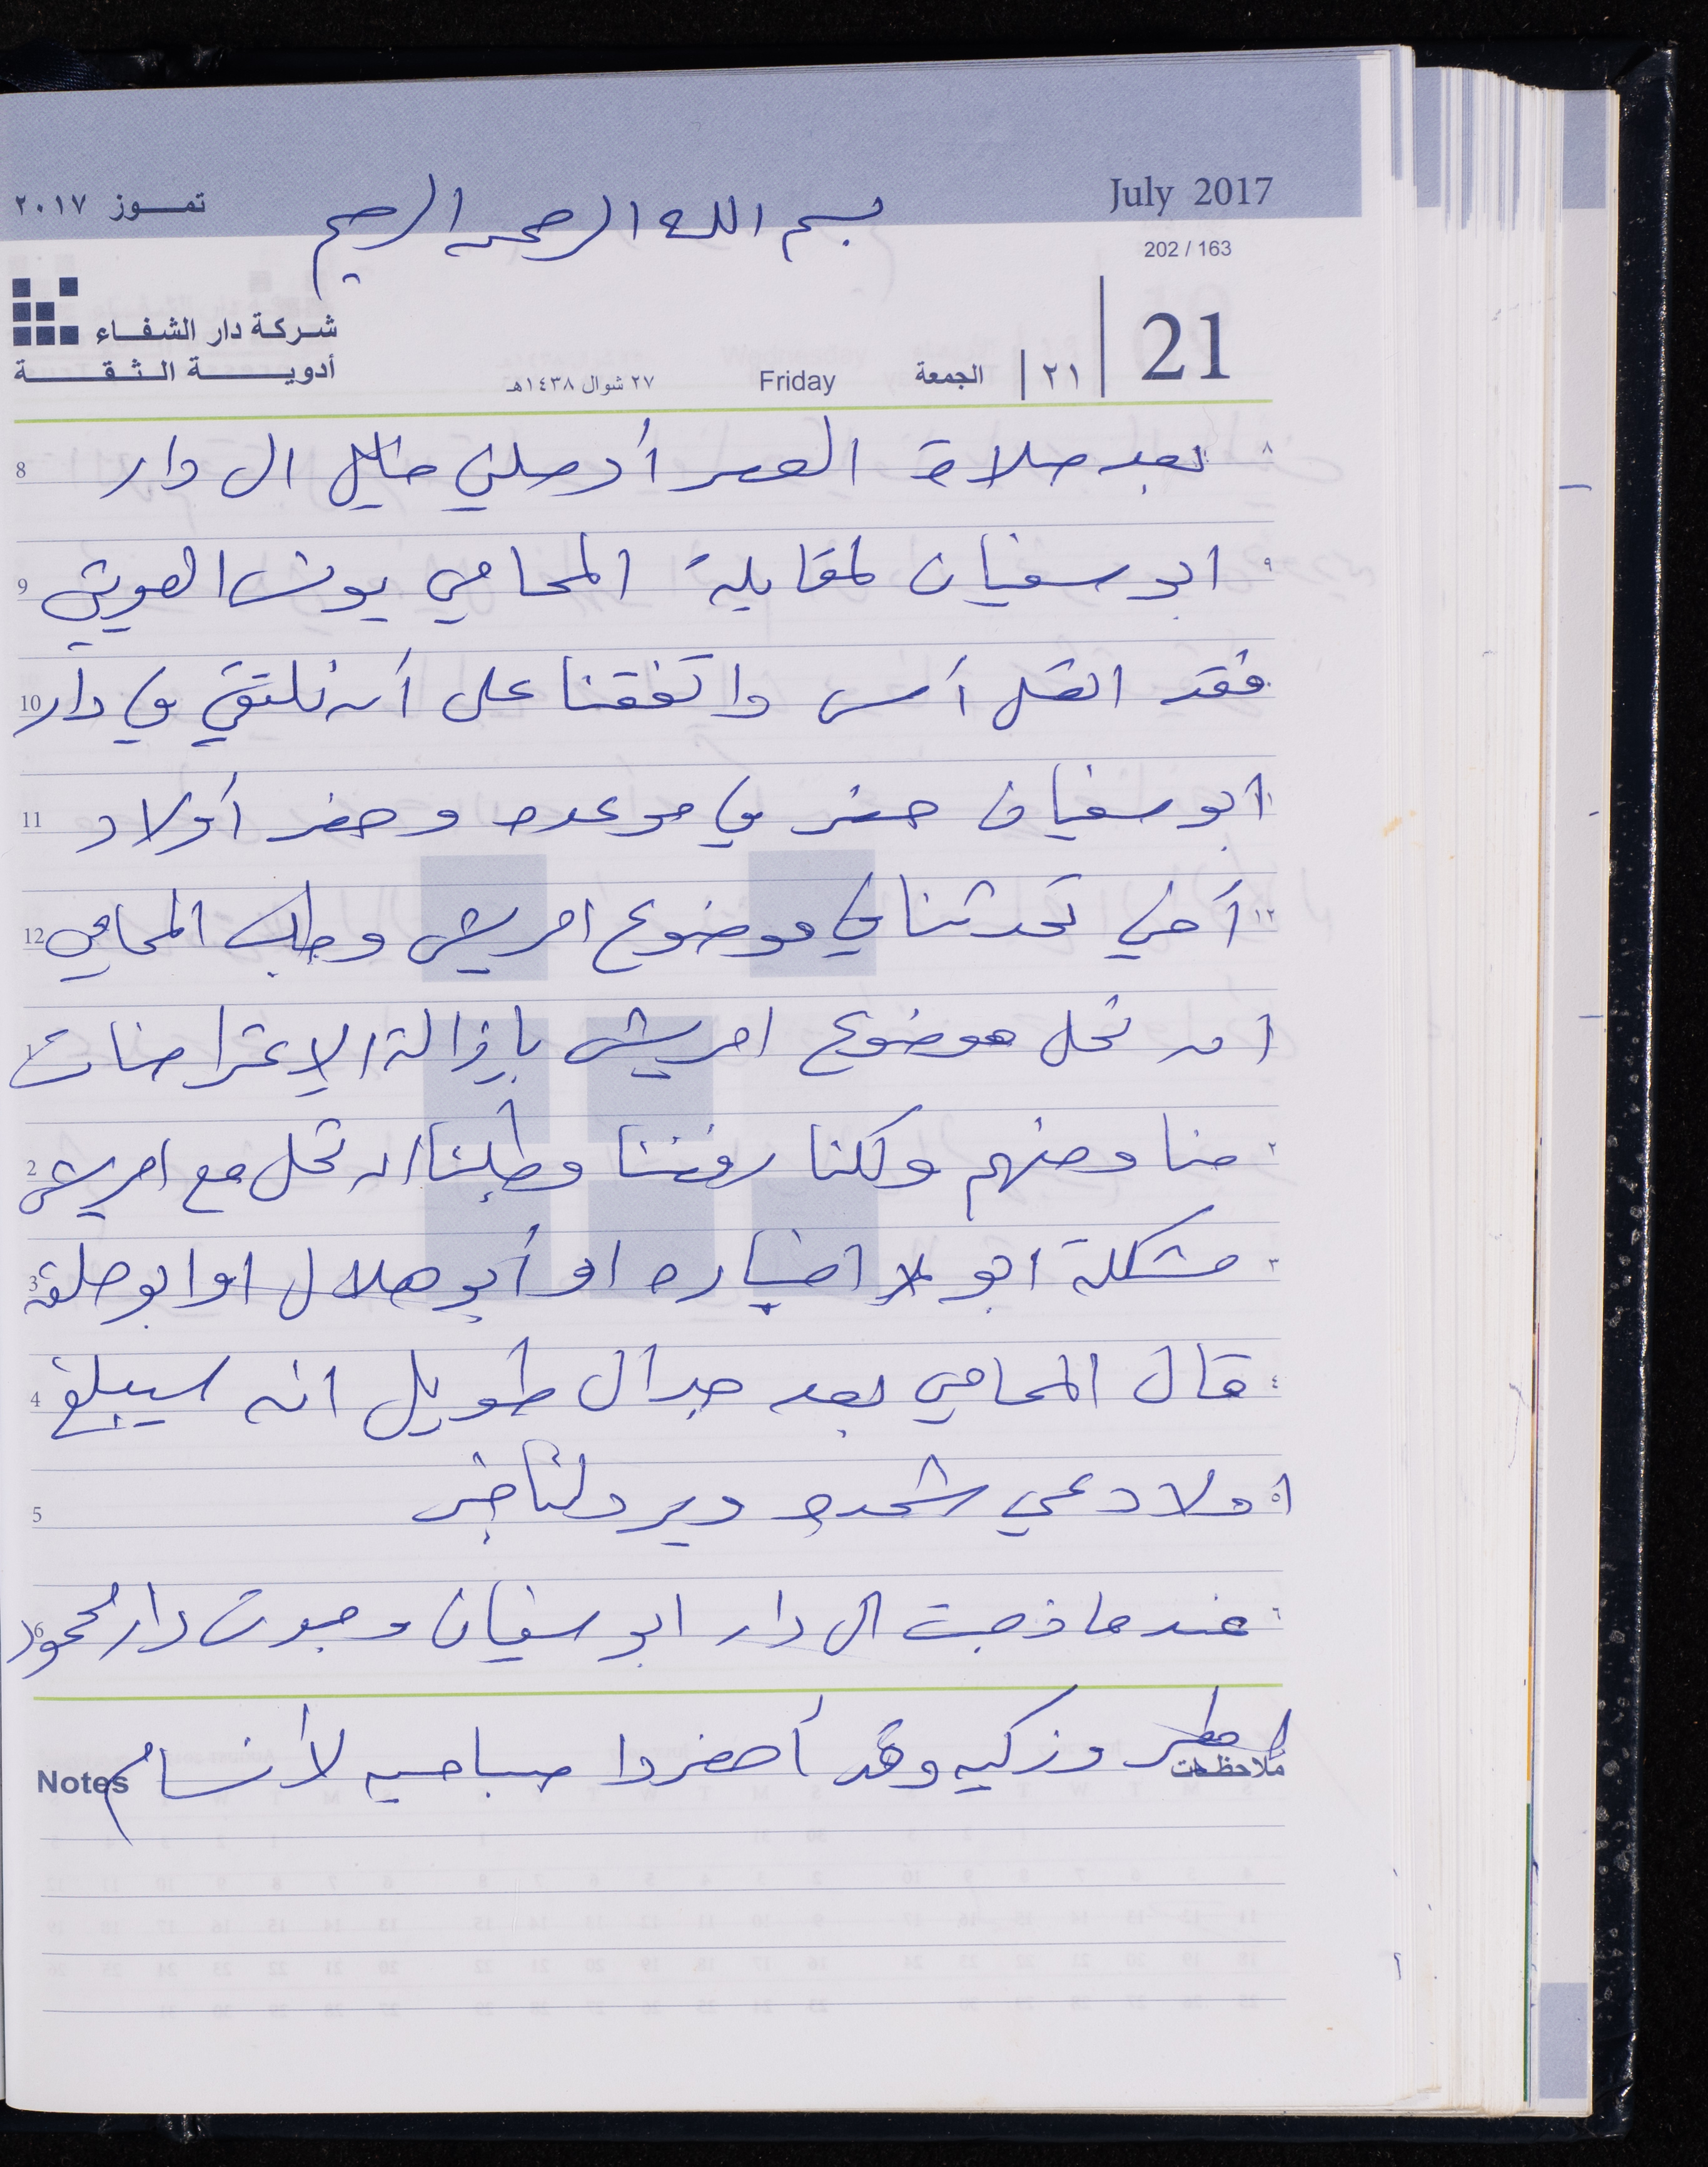 July 2017
تمـــوز ٢٠١٧
بسم الله الرحمن الرحيم
202 / 163
21 | ٢١ | الجمعة Friday ٢٧ شوال ١٤٣٨هـ
شـركـة دار الشفـــاء
أدويـــــة الـثـقــــة
8 بعد صلاة العصر أوصلني خليل الى دار ٨
9 ابو سفيان لمقابلة المحامي يونس ٩
10 فقد اتصل أمس واتفقنا على أن نلتقي في دار
11 ابو سفيان حضر في موعده وحضر أولاد ١١
12 أخي تحدثنا في موضوع امريش وطلب المحامي ١٢
1 أن نحل موضوع امريش بإزالة الإعتراضات
2 منا ومنهم ولكنا رفضنا وطلبنا ان نحل مع امريش ٢
3 مشكلة ابو او أبو هلال او ابو ٣
4 قال المحامي بعد جدال طويل انه سيبلغ ٤
5 اولاد عمي شحده ويرد لنا خبر ٥
6 عندما ذهبت الى دار ابو سفيان وجدت دار محمود ٦
مطر وزكيه وقد أحضروا صباحيه لأنسام
Notes ملاحظات